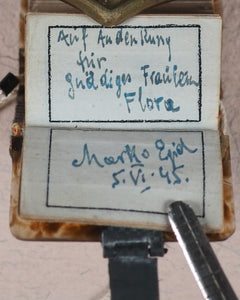 Auf Andenkung
für
gnädiges Fräulein
Flora
Marko
5. VI. 45.